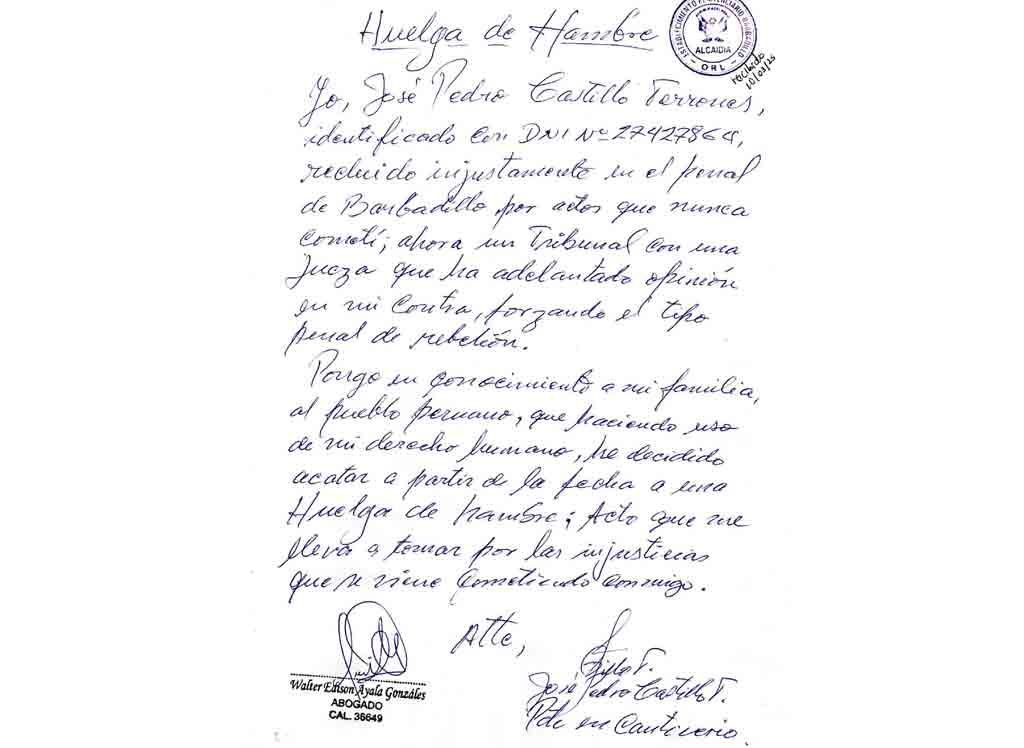 Huelga de Hambre
ESTABLECIMIENTO PENITENCIARIO BARBADILLO
ALCAIDIA
ORL
recibido
10/03/25
Yo, José Pedro Castillo Terrones,
identificado con DNI Nº 27427864,
recluido injustamente en el penal
de Barbadillo por actos que nunca
cometí; ahora un Tribunal con una
Jueza que ha adelantado opinión
en mi contra, forzando el tipo
penal de rebelión.
Pongo en conocimiento a mi familia,
al pueblo peruano, que haciendo uso
de mi derecho humano, he decidido
acatar a partir de la fecha a una
Huelga de hambre; Acto que me
lleva a tomar por las injusticias
que se viene cometiendo conmigo.
Atte,
Walter Edison Ayala Gonzáles
ABOGADO
CAL. 36649
José Pedro Castillo T.
Pdte en Cautiverio.